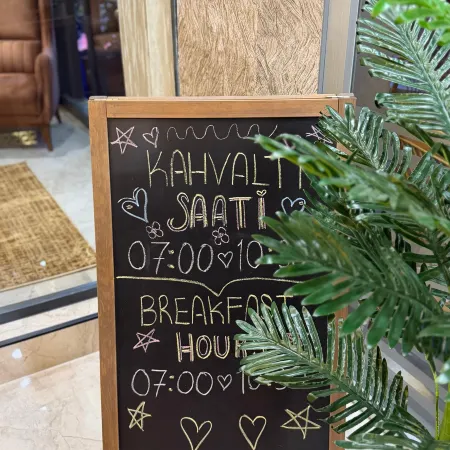 KAHVALTI
SAATİ
07:00 10
BREAKFAST
HOUR
07:00 10